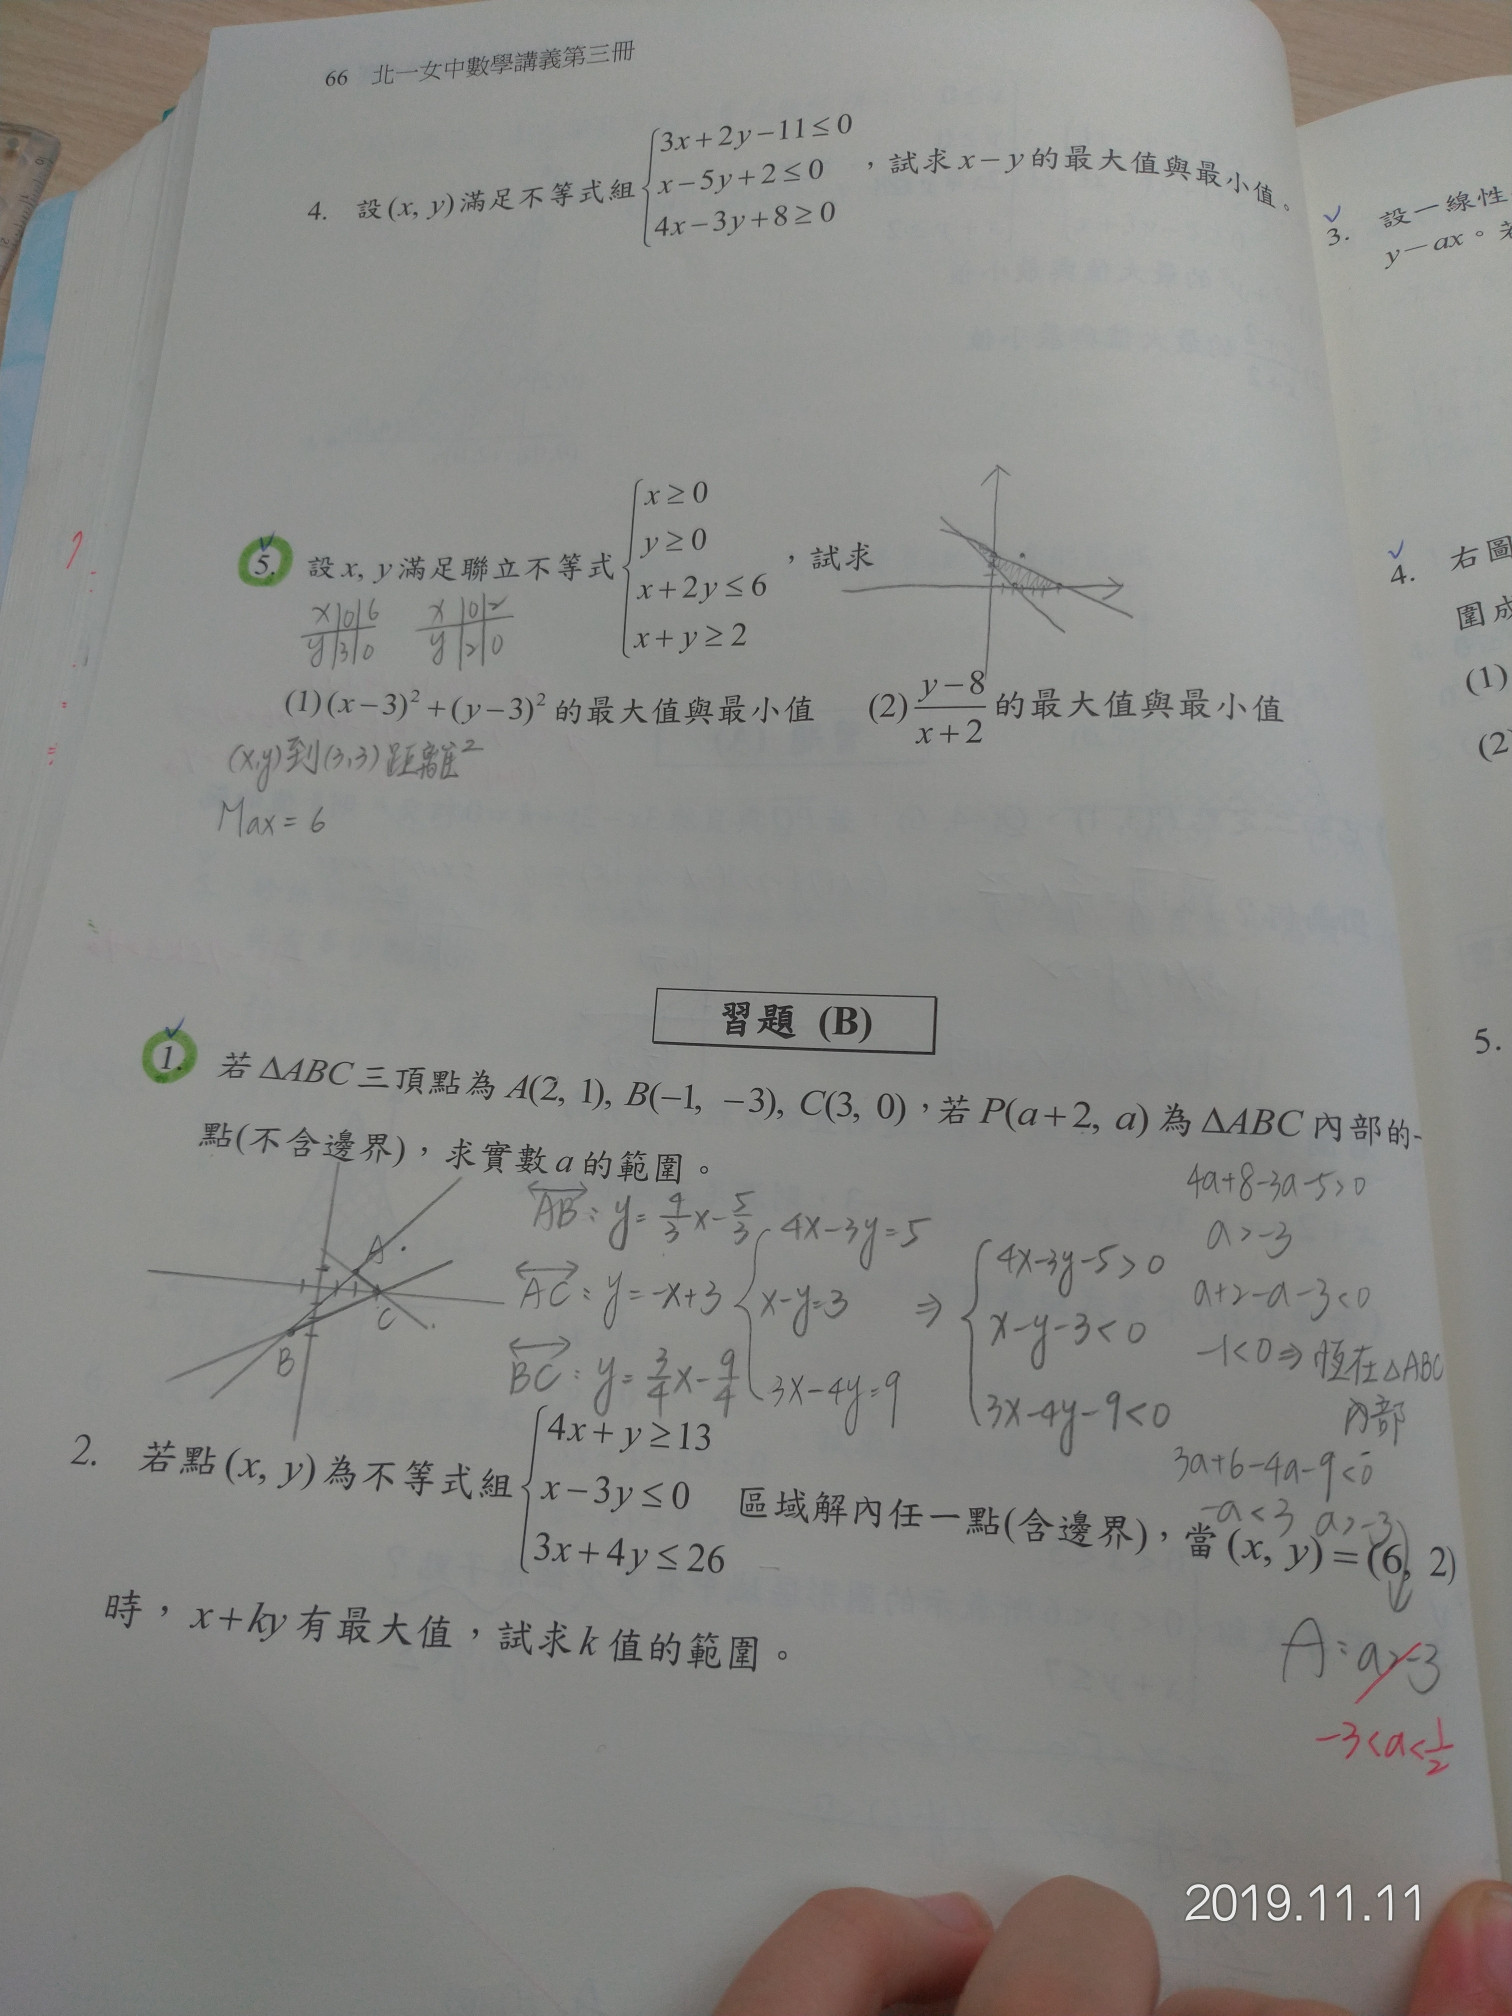 66 北一女中數學講義第三冊
4. 設(x, y)滿足不等式組{3x+2y−11≤0
x−5y+2≤0
4x−3y+8≥0
，試求x−y的最大值與最小值。
5. 設x, y滿足聯立不等式{x≥0
y≥0
x+2y≤6
x+y≥2
，試求
x|0|6
y|3|0
x|0|2
y|2|0
(1)(x−3)²+(y−3)²的最大值與最小值 (2)(y−8)/(x+2)的最大值與最小值
(x,y)到(3,3)距離²
Max=6
習題 (B)
1. 若ΔABC三頂點為A(2, 1), B(−1, −3), C(3, 0)，若P(a+2, a)為ΔABC內部的一
點(不含邊界)，求實數a的範圍。
A
B
C
AB: y=4/3x−5/3
AC: y=−x+3
BC: y=3/4x−9/4
{4x−3y=5
x−y=3
3x−4y=9
⇒{4x−3y−5>0
x−y−3<0
3x−4y−9<0
4a+8−3a−5>0
a>−3
a+2−a−3<0
−1<0⇒恆在△ABC
內部
3a+6−4a−9<0
−a<3 a>−3
A: a>−3
−3<a<1/2
2. 若點(x, y)為不等式組{4x+y≥13
x−3y≤0
3x+4y≤26
區域解內任一點(含邊界)，當(x, y)=(6, 2)
時，x+ky有最大值，試求k值的範圍。
3. 設一線性
y−ax。若
4. 右圖
圍成
(1)
(2)
5.
2019.11.11